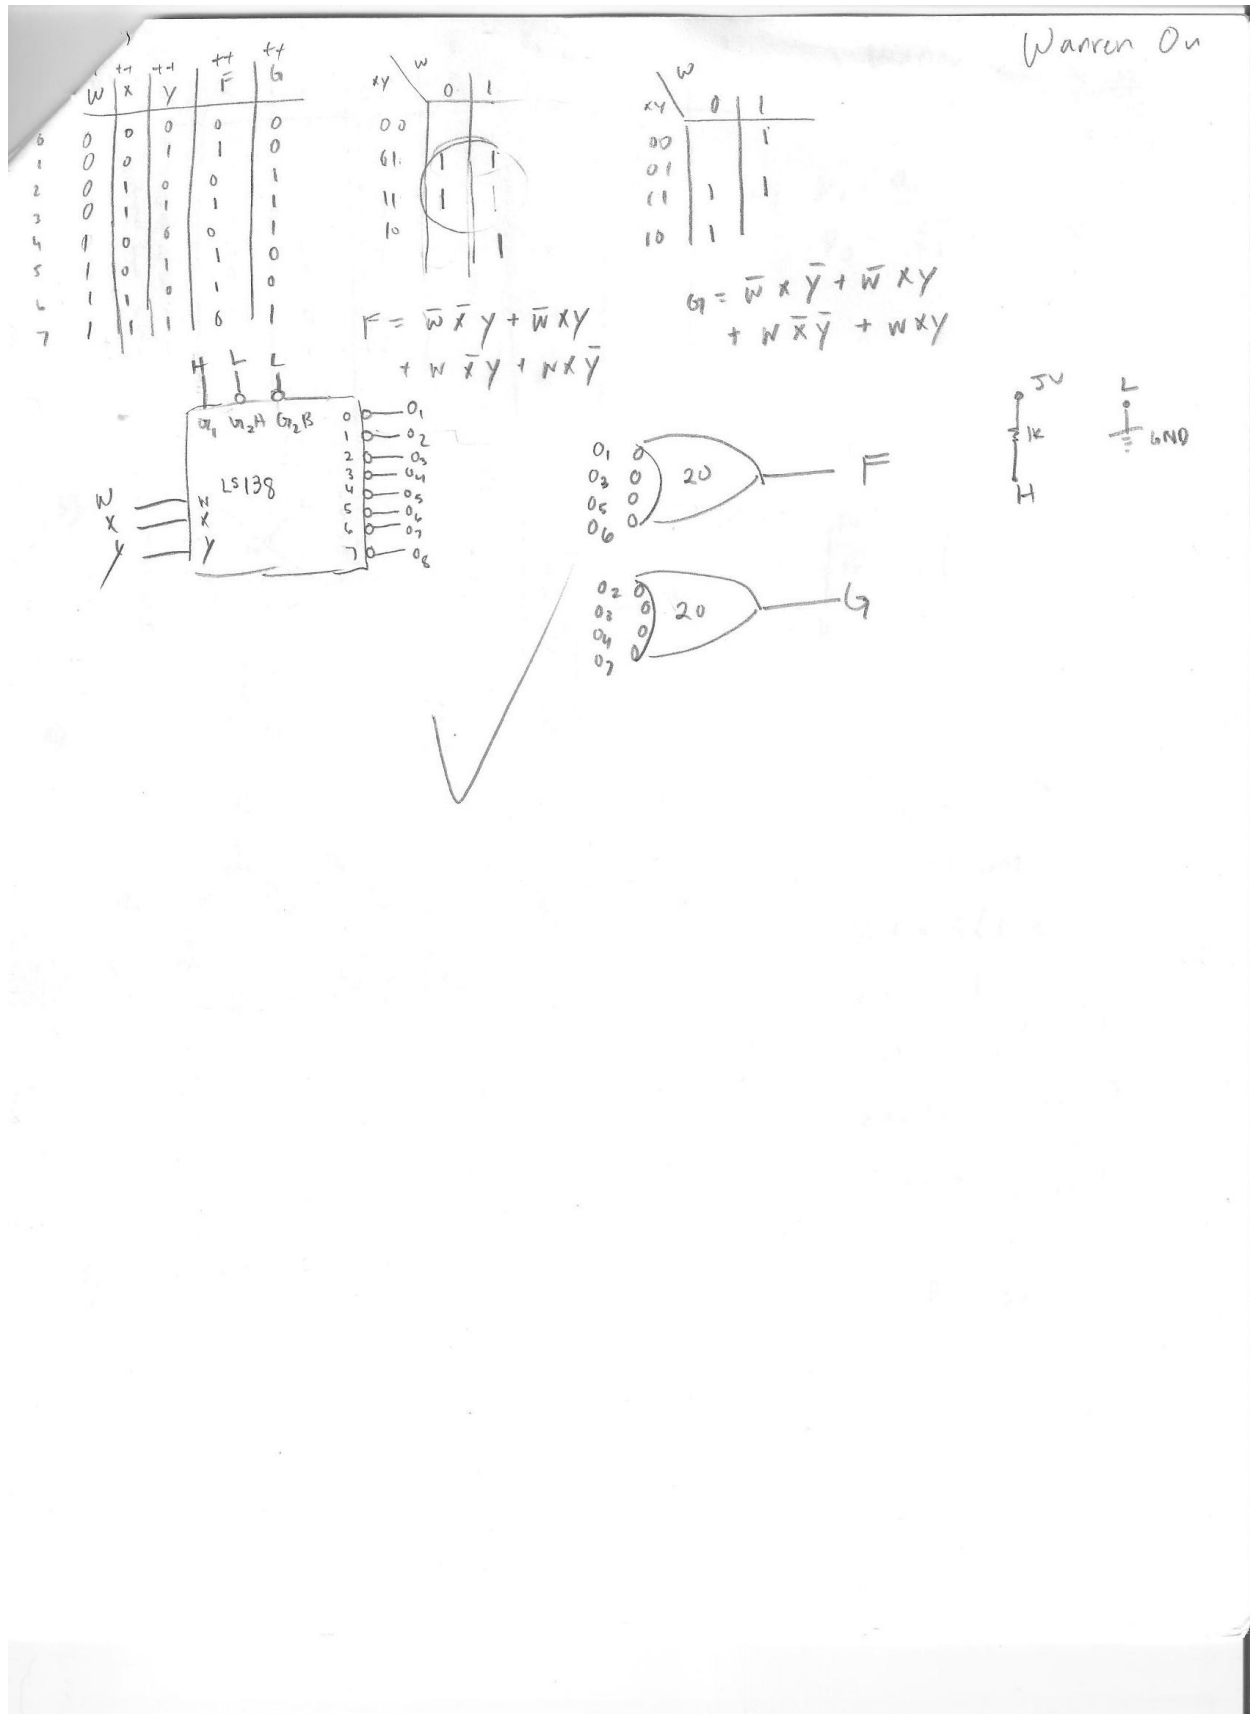 Warren Ou
++ ++ ++ ++
W X Y F G
0 0 0 0 0 0
1 0 0 1 1 0
2 0 1 0 0 1
3 0 1 1 1 1
4 1 0 0 0 1
5 1 0 1 1 0
6 1 1 0 1 0
7 1 1 1 0 1
W
XY 0 1
00
01 1 1
11 1 1
10 1
W
XY 0 1
00 1
01
11 1 1
10 1
F = W̅ X̅ Y + W̅ X Y
+ W X̅ Y + W X Y̅
G = W̅ X Y̅ + W̅ X Y
+ W X̅ Y̅ + W X Y
H L L
G₁ G₂A G₂B
LS138
W W
X X
Y Y
0 O₁
1 O₂
2 O₃
3 O₄
4 O₅
5 O₆
6 O₇
7 O₈
O₁
O₃
O₅
O₆
20 F
O₂
O₃
O₄
O₇
20 G
5V
1K
H
L
GND